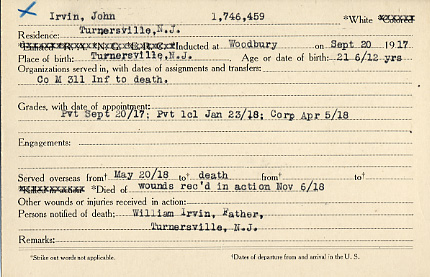 Irvin, John 1,746,459 *White
Residence: Turnersville,N.J.
Inducted at Woodbury on Sept 20 1917
Place of birth: Turnersville,N.J. Age or date of birth: 21 6/12 yrs
Organizations served in, with dates of assignments and transfers:
Co M 311 Inf to death.
Grades, with date of appointment:
Pvt Sept 20/17; Pvt 1cl Jan 23/18; Corp Apr 5/18
Engagements:
Served overseas from† May 20/18 to† death from† to†
*Killed in action *Died of wounds rec'd in action Nov 6/18
Other wounds or injuries received in action:
Persons notified of death: William Irvin, Father,
Turnersville, N.J.
Remarks:
*Strike out words not applicable. †Dates of departure from and arrival in the U. S.